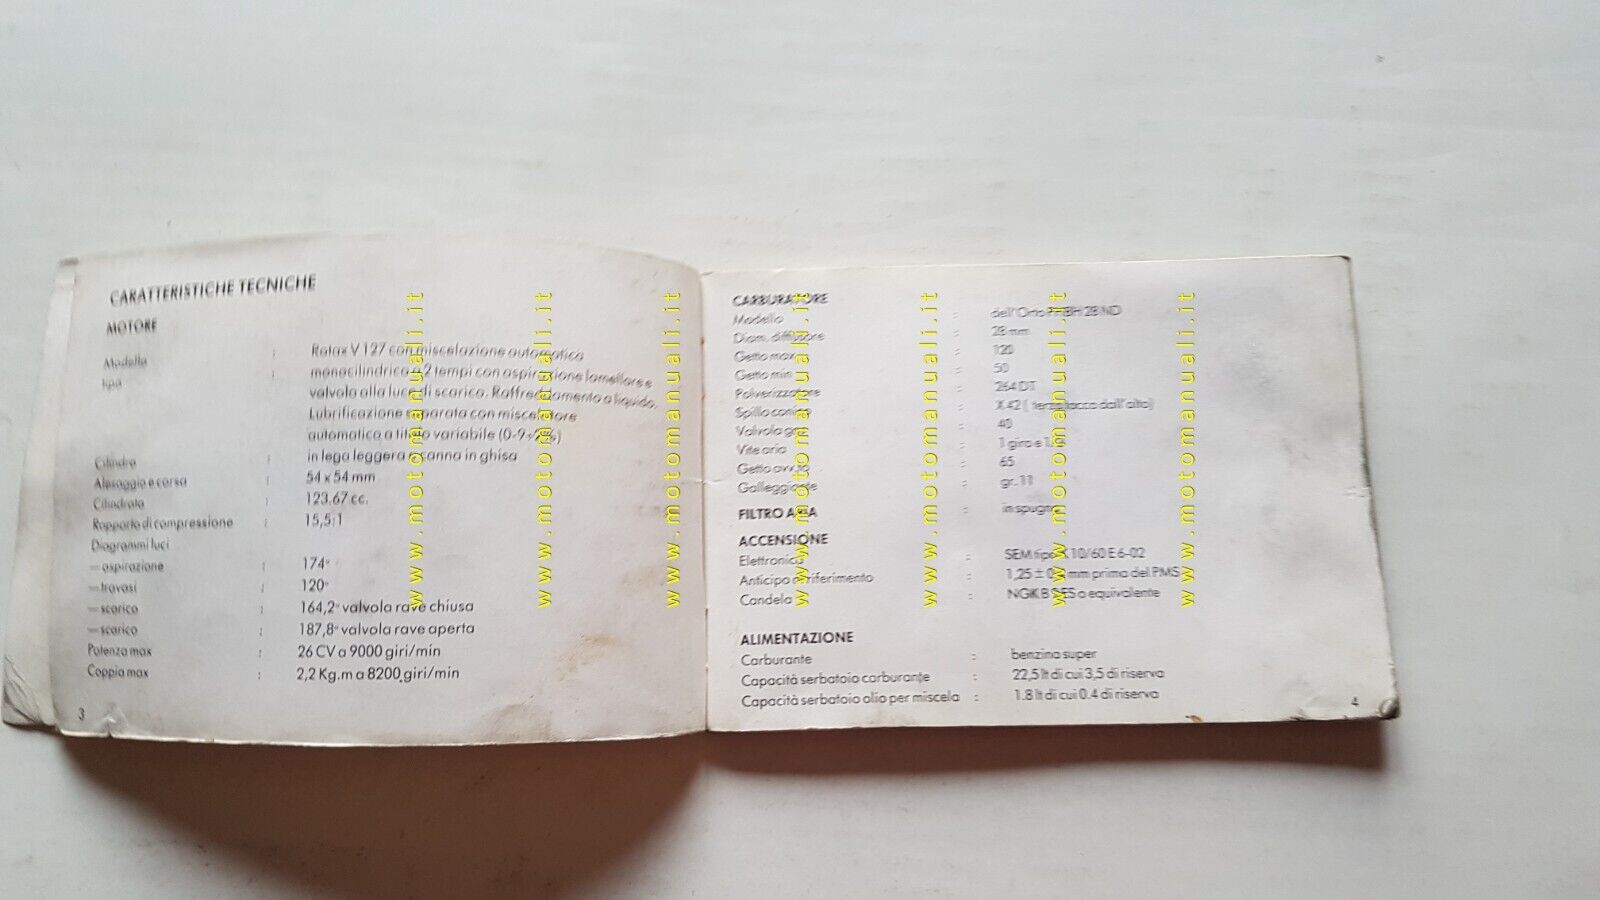 CARATTERISTICHE TECNICHE
MOTORE
Modello : Rotax V 127 con miscelazione automatica
tipo : monocilindrico a 2 tempi con aspirazione lamellare e
valvola alla luce di scarico. Raffreddamento a liquido.
Lubrificazione separata con miscelatore
automatico a titolo variabile
Cilindro : in lega leggera canna in ghisa
Alesaggio e corsa : 54 x 54 mm
Cilindrata : 123.67 cc.
Rapporto di compressione : 15,5:1
Diagrammi luci
—aspirazione : 174°
—travasi : 120°
—scarico : 164,2° valvola rave chiusa
—scarico : 187,8° valvola rave aperta
Potenza max : 26 CV a 9000 giri/min
Coppia max : 2,2 Kg.m a 8200 giri/min
3
CARBURATORE
Modello : dell'Orto PHBH 28 ND
Diam. diffusore : 28 mm
Getto max : 120
Getto min : 50
Polverizzatore : 264 DT
Spillo conico : X 42 ( terza tacca dall'alto)
Valvola gas : 40
Vite aria : 1 giro e
Getto avvio : 65
Galleggiante : gr. 11
FILTRO ARIA : in spugna
ACCENSIONE
Elettronica : SEM tipo 10/60 E 6-02
Anticipo riferimento : 1,25 ± mm prima del PMS
Candela : NGK o equivalente
ALIMENTAZIONE
Carburante : benzina super
Capacità serbatoio carburante : 22,5 lt di cui 3,5 di riserva
Capacità serbatoio olio per miscela : 1.8 lt di cui 0.4 di riserva
4
www.motomanuali.it
www.motomanuali.it
www.motomanuali.it
www.motomanuali.it
www.motomanuali.it
www.motomanuali.it
www.motomanuali.it